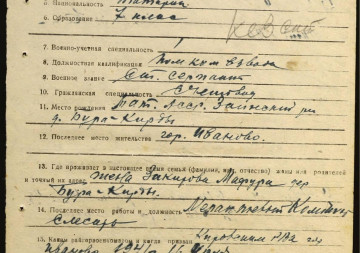 5. Национальность татарин
6. Образование 7 класс
7. Военно-учетная специальность
8. Должностная квалификация пом ком взвода
9. Военное звание Ст. сержант
10. Гражданская специальность Счетовод
11. Место рождения Тат. Асср. Заинский рн
д. Бура-Кирды
12. Последнее место жительства гор. Иваново.
13. Где проживает в настоящее время семья (фамилия, имя, отчество) жены или родителей
и точный их адрес жена Закирова
Бура-Кирды.
14. Последнее место работы и должность
Слесарь
15. Каким райгорвоенкоматом и когда призван